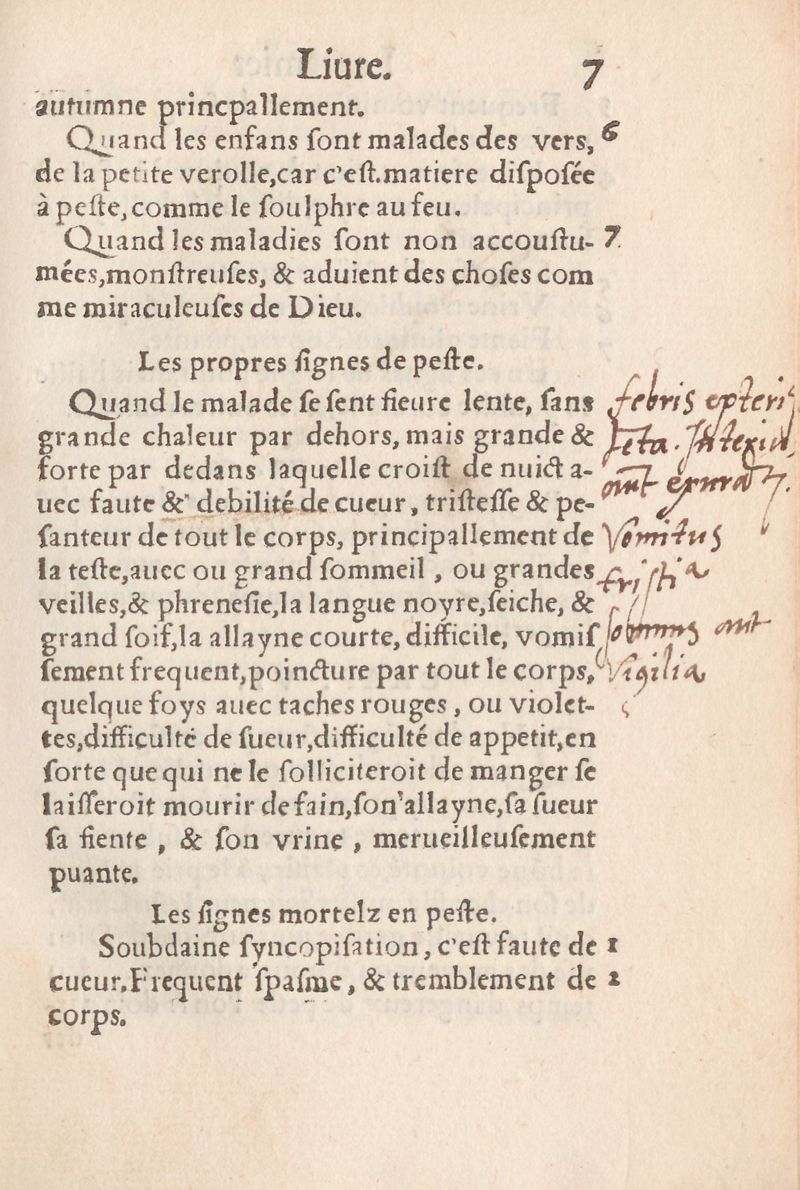 Liure. 7
autumne princpallement.
Quand les enfans ſont malades des vers, 6
de la petite verolle,car c'eſt.matiere diſpoſée
à peſte,comme le ſoulphre au feu.
Quand les maladies ſont non accouſtu- 7.
mées,monſtreuſes, & aduient des choſes com
me miraculeuſes de Dieu.
Les propres ſignes de peſte.
Quand le malade ſe ſent fieure lente, ſans
grande chaleur par dehors, mais grande &
forte par dedans laquelle croiſt de nuict a-
uec faute & debilité de cueur, triſteſſe & pe-
ſanteur de tout le corps, principallement de
la teſte,auec ou grand ſommeil, ou grandes
veilles,& phreneſie,la langue noyre,ſeiche, &
grand ſoif,la allayne courte, difficile, vomiſ
ſement frequent,poincture par tout le corps,
quelque foys auec taches rouges, ou violet-
tes,difficulté de ſueur,difficulté de appetit,en
ſorte que qui ne le ſolliciteroit de manger ſe
laiſſeroit mourir de fain,ſon'allayne,ſa ſueur
ſa fiente, & ſon vrine, merueilleuſement
puante.
Les ſignes mortelz en peſte.
Soubdaine ſyncopiſation, c'eſt faute de 1
cueur.Frequent ſpaſme, & tremblement de 2
corps.
febris
Vomitus
Vigilia